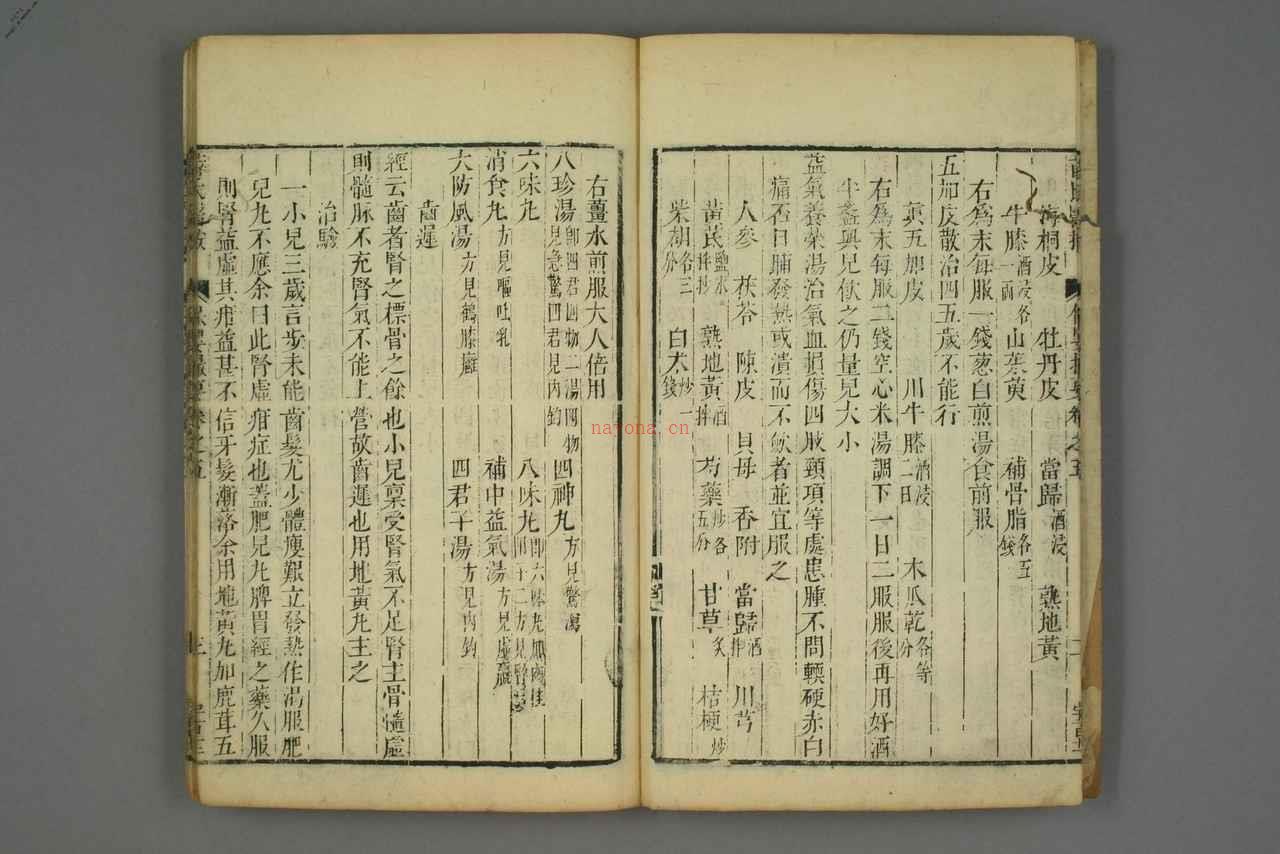 海桐皮 牡丹皮 當歸酒浸 熟地黃
牛膝酒浸各一兩 山茱萸 補骨脂各五錢
右為末每服一錢葱白煎湯食前服
五加皮散治四五歲不能行
真五加皮 川牛膝酒浸二日 木瓜乾各等分
右爲末每服二錢空心米湯調下一日二服服後再用好酒
半盞與兒飲之仍量兒大小
益氣養榮湯治氣血損傷四肢頸項等處患腫不問輭硬赤白
痛否日晡發熱或潰而不歛者並宜服之
人參 茯苓 陳皮 貝母 香附 當歸酒拌 川芎
黃芪鹽水拌抄 熟地黃酒拌 芍藥炒各五分 甘草炙 桔梗炒
柴胡各三分 白朮炒一錢
右薑水煎服大人倍用
八珍湯即四君四物二湯四物見急驚四君見內釣 四神丸方見驚瀉
六味丸 八味丸即六味丸加肉桂附子二方見腎
消食丸方見嘔吐乳 補中益氣湯方見虛羸
大防風湯方見鶴膝 四君子湯方見內釣
齒遲
經云齒者腎之標骨之餘也小兒稟受腎氣不足腎主骨髓虛
則髓脉不充腎氣不能上營故齒遲也用地黃丸主之
治驗
一小兒三歲言步未能齒髮尤少體瘦艱立發熱作渴服肥
兒丸不應余曰此腎虛疳症也蓋肥兒丸脾胃經之藥久服
則腎益虛其疳益甚不信牙髮漸落余用地黃丸加鹿茸五
nayona.cn